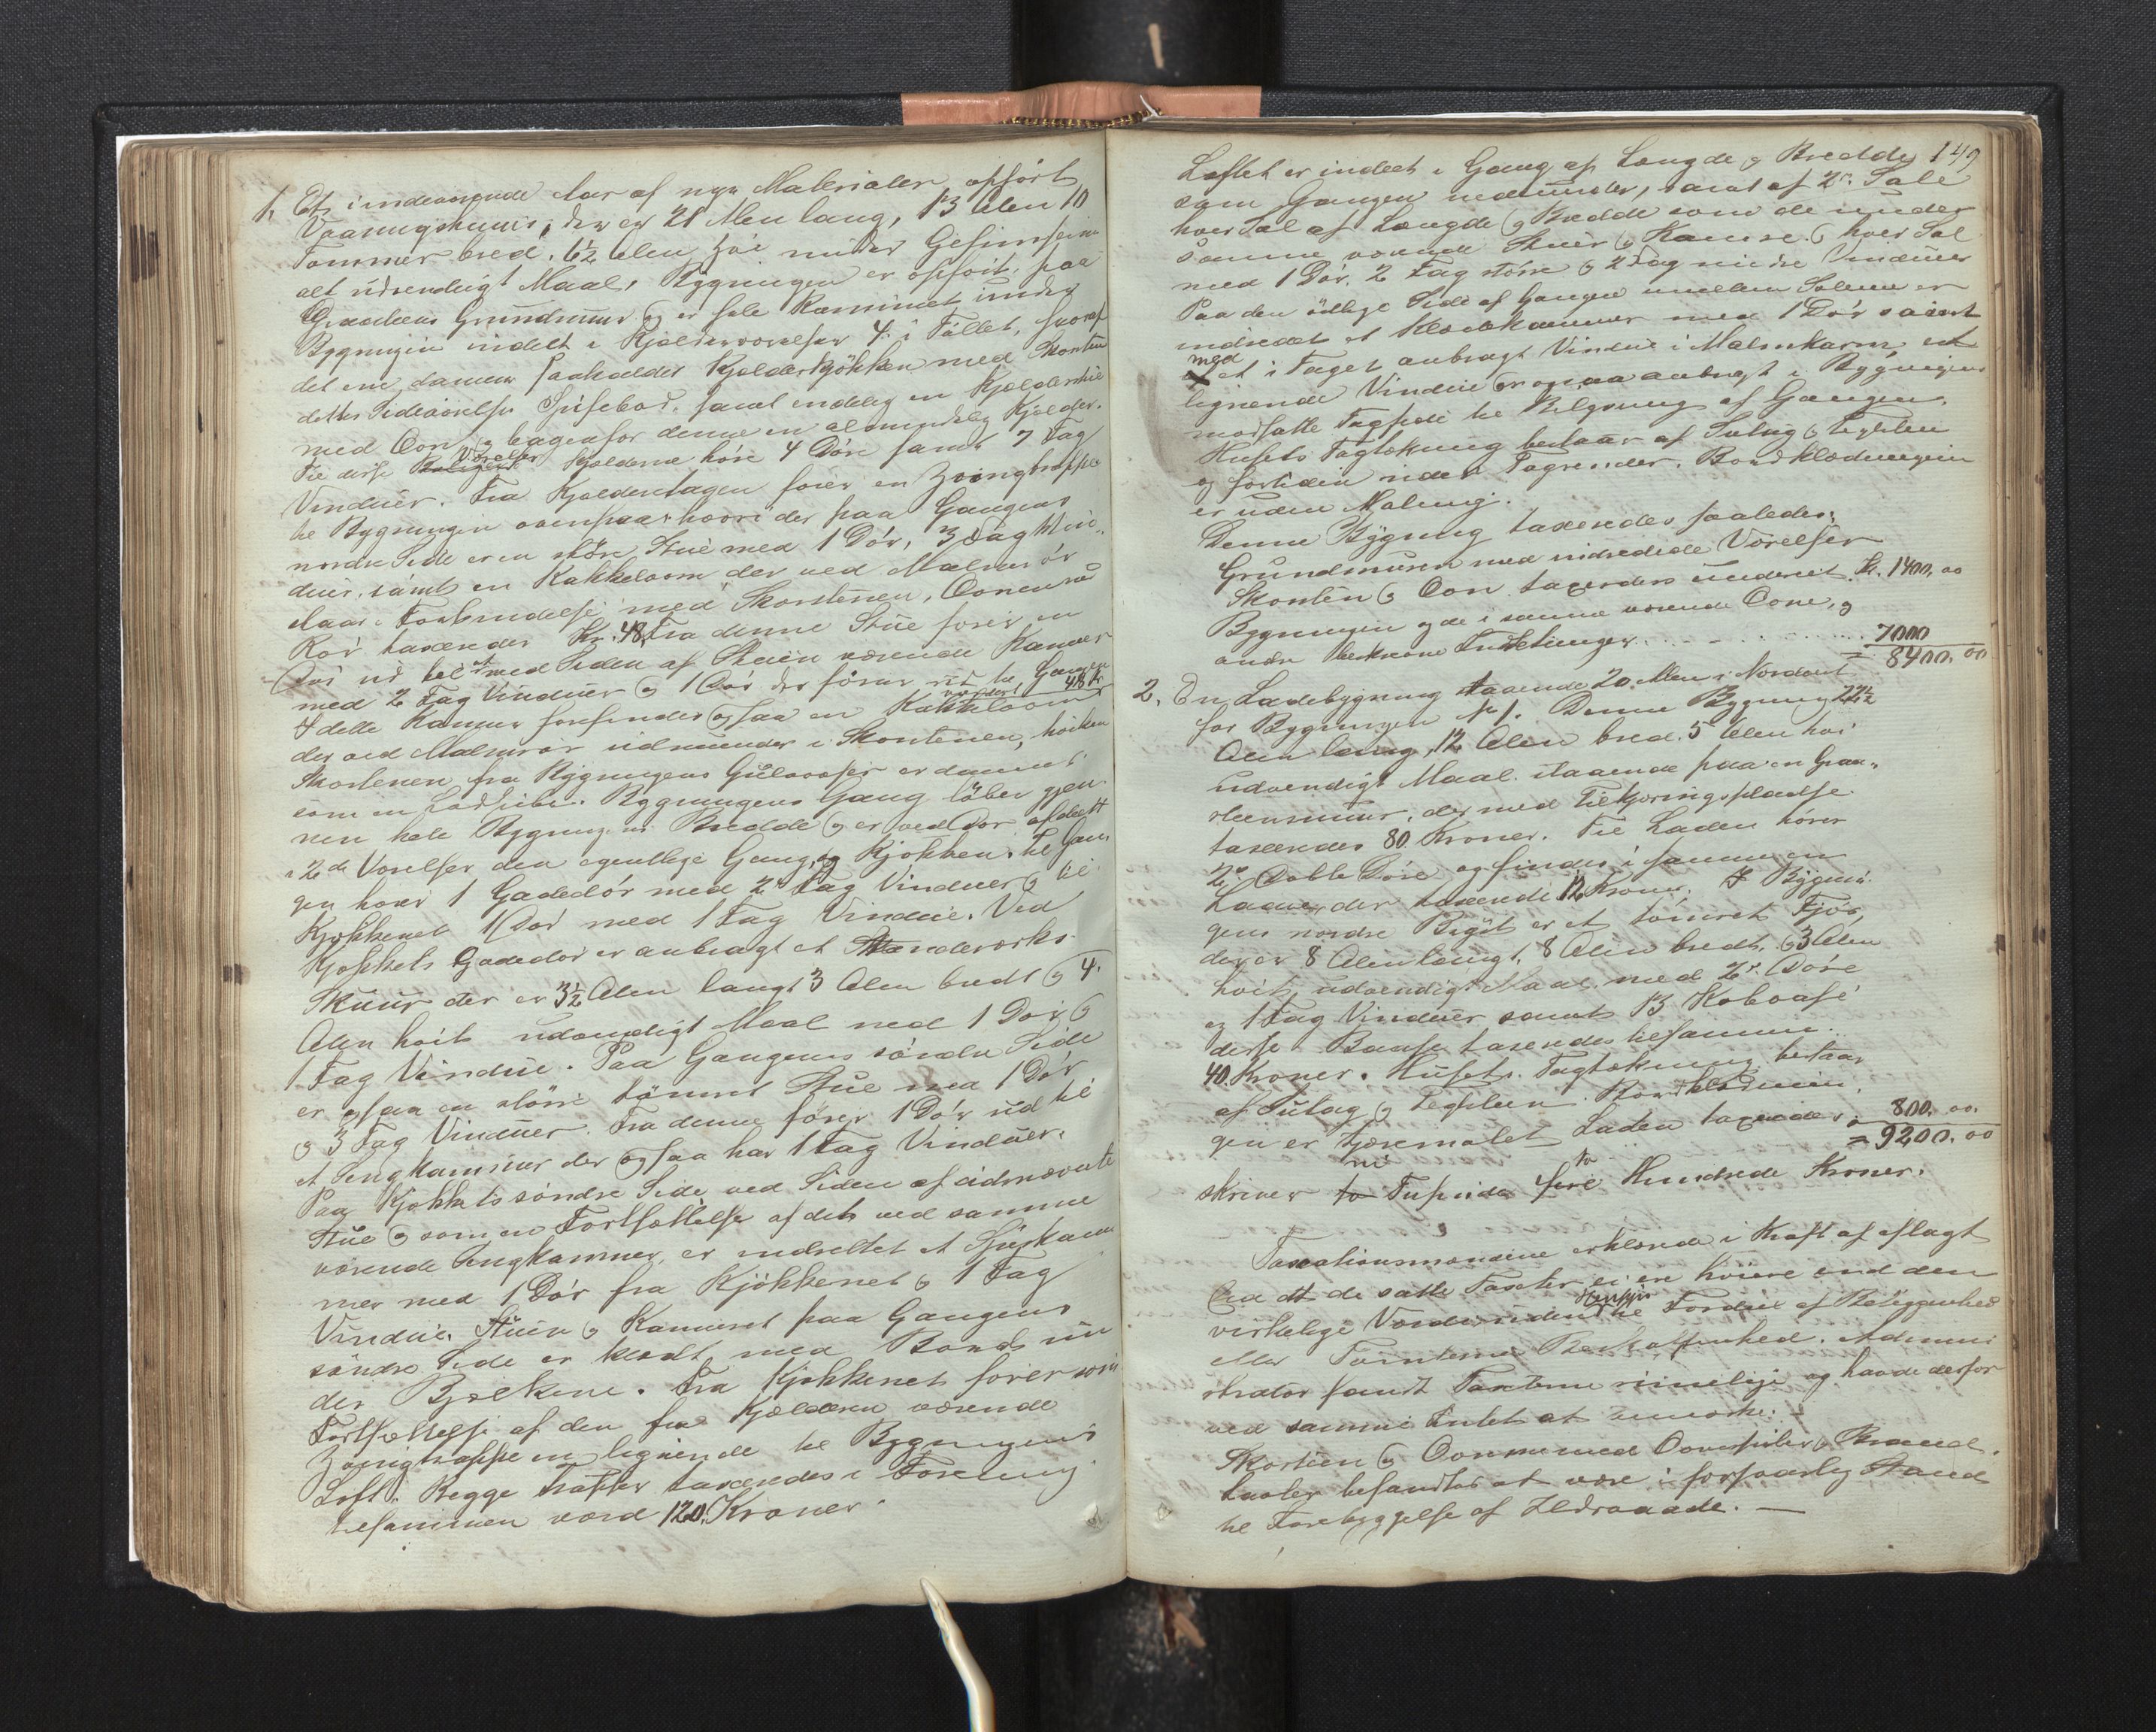 1. Et i indeværende Aar af nye Materialer opført
Vaaningshuus, der er 21 Alen lang, 13 Alen 10
Tommer bred, 6½ Alen høi under Gesimsen
alt udvendigt Maal, Bygningen er opført paa
Graasteens Grundmuur og er hele Rummet under
Bygningen indelt i Kjelderværelser 4 i Tallet, hvoraf
det ene danner saakaldet Kjelderkjøkken med Skorsten
dettes Sideværelse Spisebod, samt endelig en Kjelderstue
med Ovn og bagenfor denne en almindelig Kjelder.
Til disse Værelser Kjelderne høre 4 Døre samt 7 Fag
Vinduer. Fra Kjelderetagen fører en Svingtrappe
til Bygningen ovenpaa, hvori der paa Gangens
nordre Side er en større Stue med 1 Dør, 3 Fag Vin-
duer, samt en Kakkelovn der ved Malmrør
staar i Forbindelse med Skorstenen, Ovnen med
Rør taxeredes Kr. 48. Fra denne Stue fører en
Dør ud til et ved Siden af Stuen værende Kammer
med 2 Fag Vinduer og 1 Dør der fører ud til Gangen
I dette Kammer forefindes ogsaa en Kakkelovn værderet 48 Kr
der ved Malmrør udmunder i Skorstenen, hvilken
Skorstenen fra Bygningens Gulv er dannet
som en Lodpibe. Bygningens Gang løber gjen-
nem hele Bygningens Bredde og er ved Dør afdelt
i 2de Værelser den egentlige Gang og Kjøkken. Til Gan-
gen hører 1 Gadedør med 2 Fag Vinduer og til
Kjøkkenet 1 Dør med 1 Fag Vindue. Ved
Kjøkkets Gadedør er anbragt et Stenderværks
Skuur der er 3½ Alen langt 3 Alen bredt og 4
Alen høit udvendigt Maal med 1 Dør og
1 Fag Vindue. Paa Gangens søndre Side
er ogsaa en større tømret Stue med 1 Dør
og 3 Fag Vinduer. Fra denne fører 1 Dør ud til
et Sengkammer der ogsaa har 1 Fag Vinduer.
Paa Kjøkkets søndre Side ved Siden af sidnævnte
Stue og som en Fortsættelse af det ved samme
værende Sengkammer, er indrettet et Spiskam-
mer med 1 Dør fra Kjøkkenet og 1 Fag
Vindue. Stuen og Kammeret paa Gangens
søndre Side er klædt med Bord un-
der Bjelkene. Fra Kjøkkenet fører som
Fortsættelse af den fra Kjælderen værende
Svingtrappe en lignende til Bygningens
Loft. Begge Trapper taxeredes i Forening
tilsammen værd 120 Kroner.
149
Loftet er indeelt i Gang af Længde og Bredde
som Gangen nedunder, samt af 2de Sale
hver Sal af Længde og Bredde som de under
samme værende Stuer og Kamre. og hver Sal
med 1 Dør, 2 Fag større og 2 Fag mindre Vinduer
Paa den østlige Side af Gangen mellem Salene er
indredet et Klædekammer med 1 Dør samt
med et i Taget anbragt Vindue i Malmkarm, et
lignende Vindue er ogsaa anbragt i Bygningens
modsatte Tagside til Belysning af Gangen.
Husets Tagtækning bestaar af Sutag og Teglsten
og fortiden uden Tagrender. Bordklædningen
er uden Maling.
Denne Bygning taxeredes saaledes:
Grundmuren med indredede Værelser
Skorsten og Ovn taxeredes under et Kr. 1400,00
Bygningen og de i samme værende Ovne, og
andre beskrevne Indretninger 7000
= 8400,00
2. En Ladebygning staaende 20 Alen i Nordost
for Bygningen No 1. Denne Bygning er 22½
Alen lang, 12 Alen bred, 5 Alen høi
udvendigt Maal. staaende paa en Graa-
steensmuur, der med Tilkjøringspladse
taxeredes 80 Kroner. Til Laden hører
2de Doble Døre og findes i samme en
Laave, der taxeredes 12 Kroner. I Bygnin-
gens nordre Bygt er et tømret Fjøs,
der er 8 Alen langt, 8 Alen bredt, og 3 Alen
høit, udvendigt Maal med 2de Døre
og 1 Fag Vinduer samt 13 Kobaase
disse Baase taxeredes tilsammen
40 Kroner. Husets Tagtækning bestaar
af Sutag og Teglsten. Bordklædnin-
gen er tjæremalet Laden taxeredes: 800,00
= 9200,00
skriver ni Tusinde to Hundrede Kroner.
Taxationsmændene erklærede i Kraft af aflagt
Ed at de satte Taxter ei ere høiere end den
virkelige Værdi uden Hensyn til Fordele af Beliggenhed
eller Tomternes Beskaffenhed. Admini-
strator fandt Taxterne rimelige og havde derfor
ved samme Intet at bemærke.
Skorsten og Ovnene med Ovnspiber og Brand-
taxter befandtes at være i forsvarlig Stand
til Forebyggelse af Ildsvaade. —